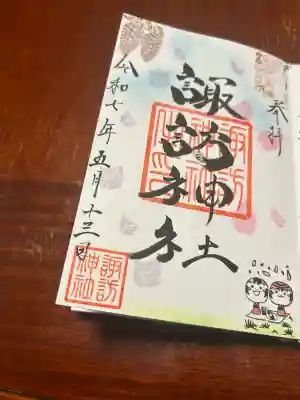 参拝
諏訪神社
諏訪神社
令和七年五月十三日
諏訪
神社